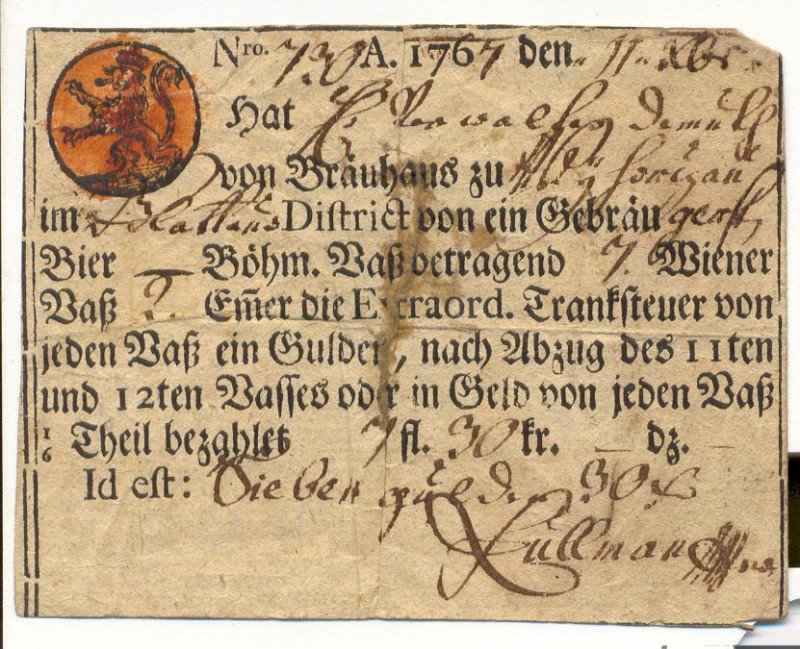 Nro. 730 A. 1767 den 11. Xbr.
Hat H. Verwalther
von Bräuhaus zu
im District von ein Gebräu gerst
Bier — Böhm. Vaß betragend 7. Wiener
Vaß 2. Em̄er die Extraord. Tranksteuer von
jeden Vaß ein Gulden, nach Abzug des 11ten
und 12ten Vasses oder in Geld von jeden Vaß
1/6 Theil bezahlet 7 fl. 30 kr. — dz. —
Id est: Sieben gulden 30 x
Kullman